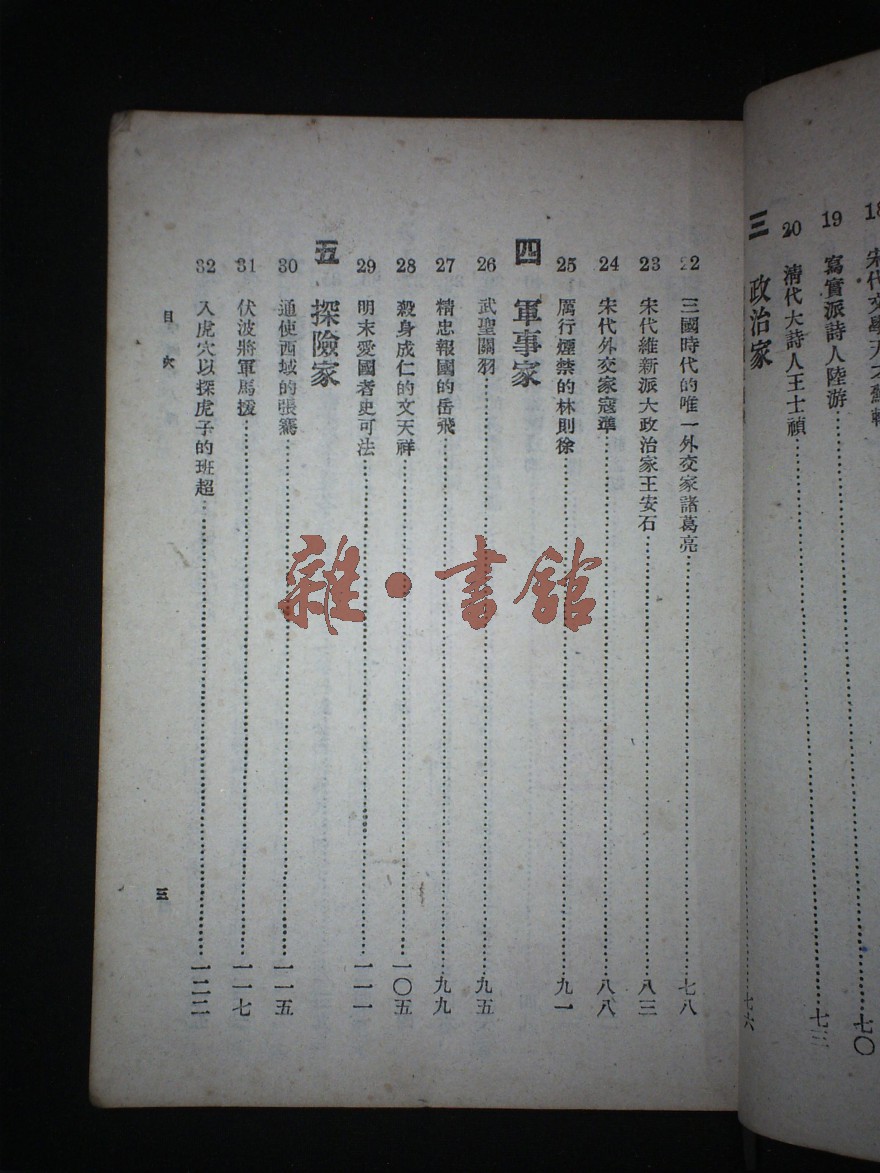 宋代文學天才蘇軾
七〇
19 寫實派詩人陸游……七三
20 清代大詩人王士禎……七六
三 政治家
22 三國時代的唯一外交家諸葛亮……七八
23 宋代維新派大政治家王安石……八三
24 宋代外交家寇準……八八
25 厲行煙禁的林則徐……九一
四 軍事家
26 武聖關羽……九五
27 精忠報國的岳飛……九九
28 殺身成仁的文天祥……一〇五
29 明末愛國者史可法……一一一
五 探險家
30 通使西域的張騫……一一五
31 伏波將軍馬援……一一七
32 入虎穴以探虎子的班超……一二二
目次
三
雜·書館